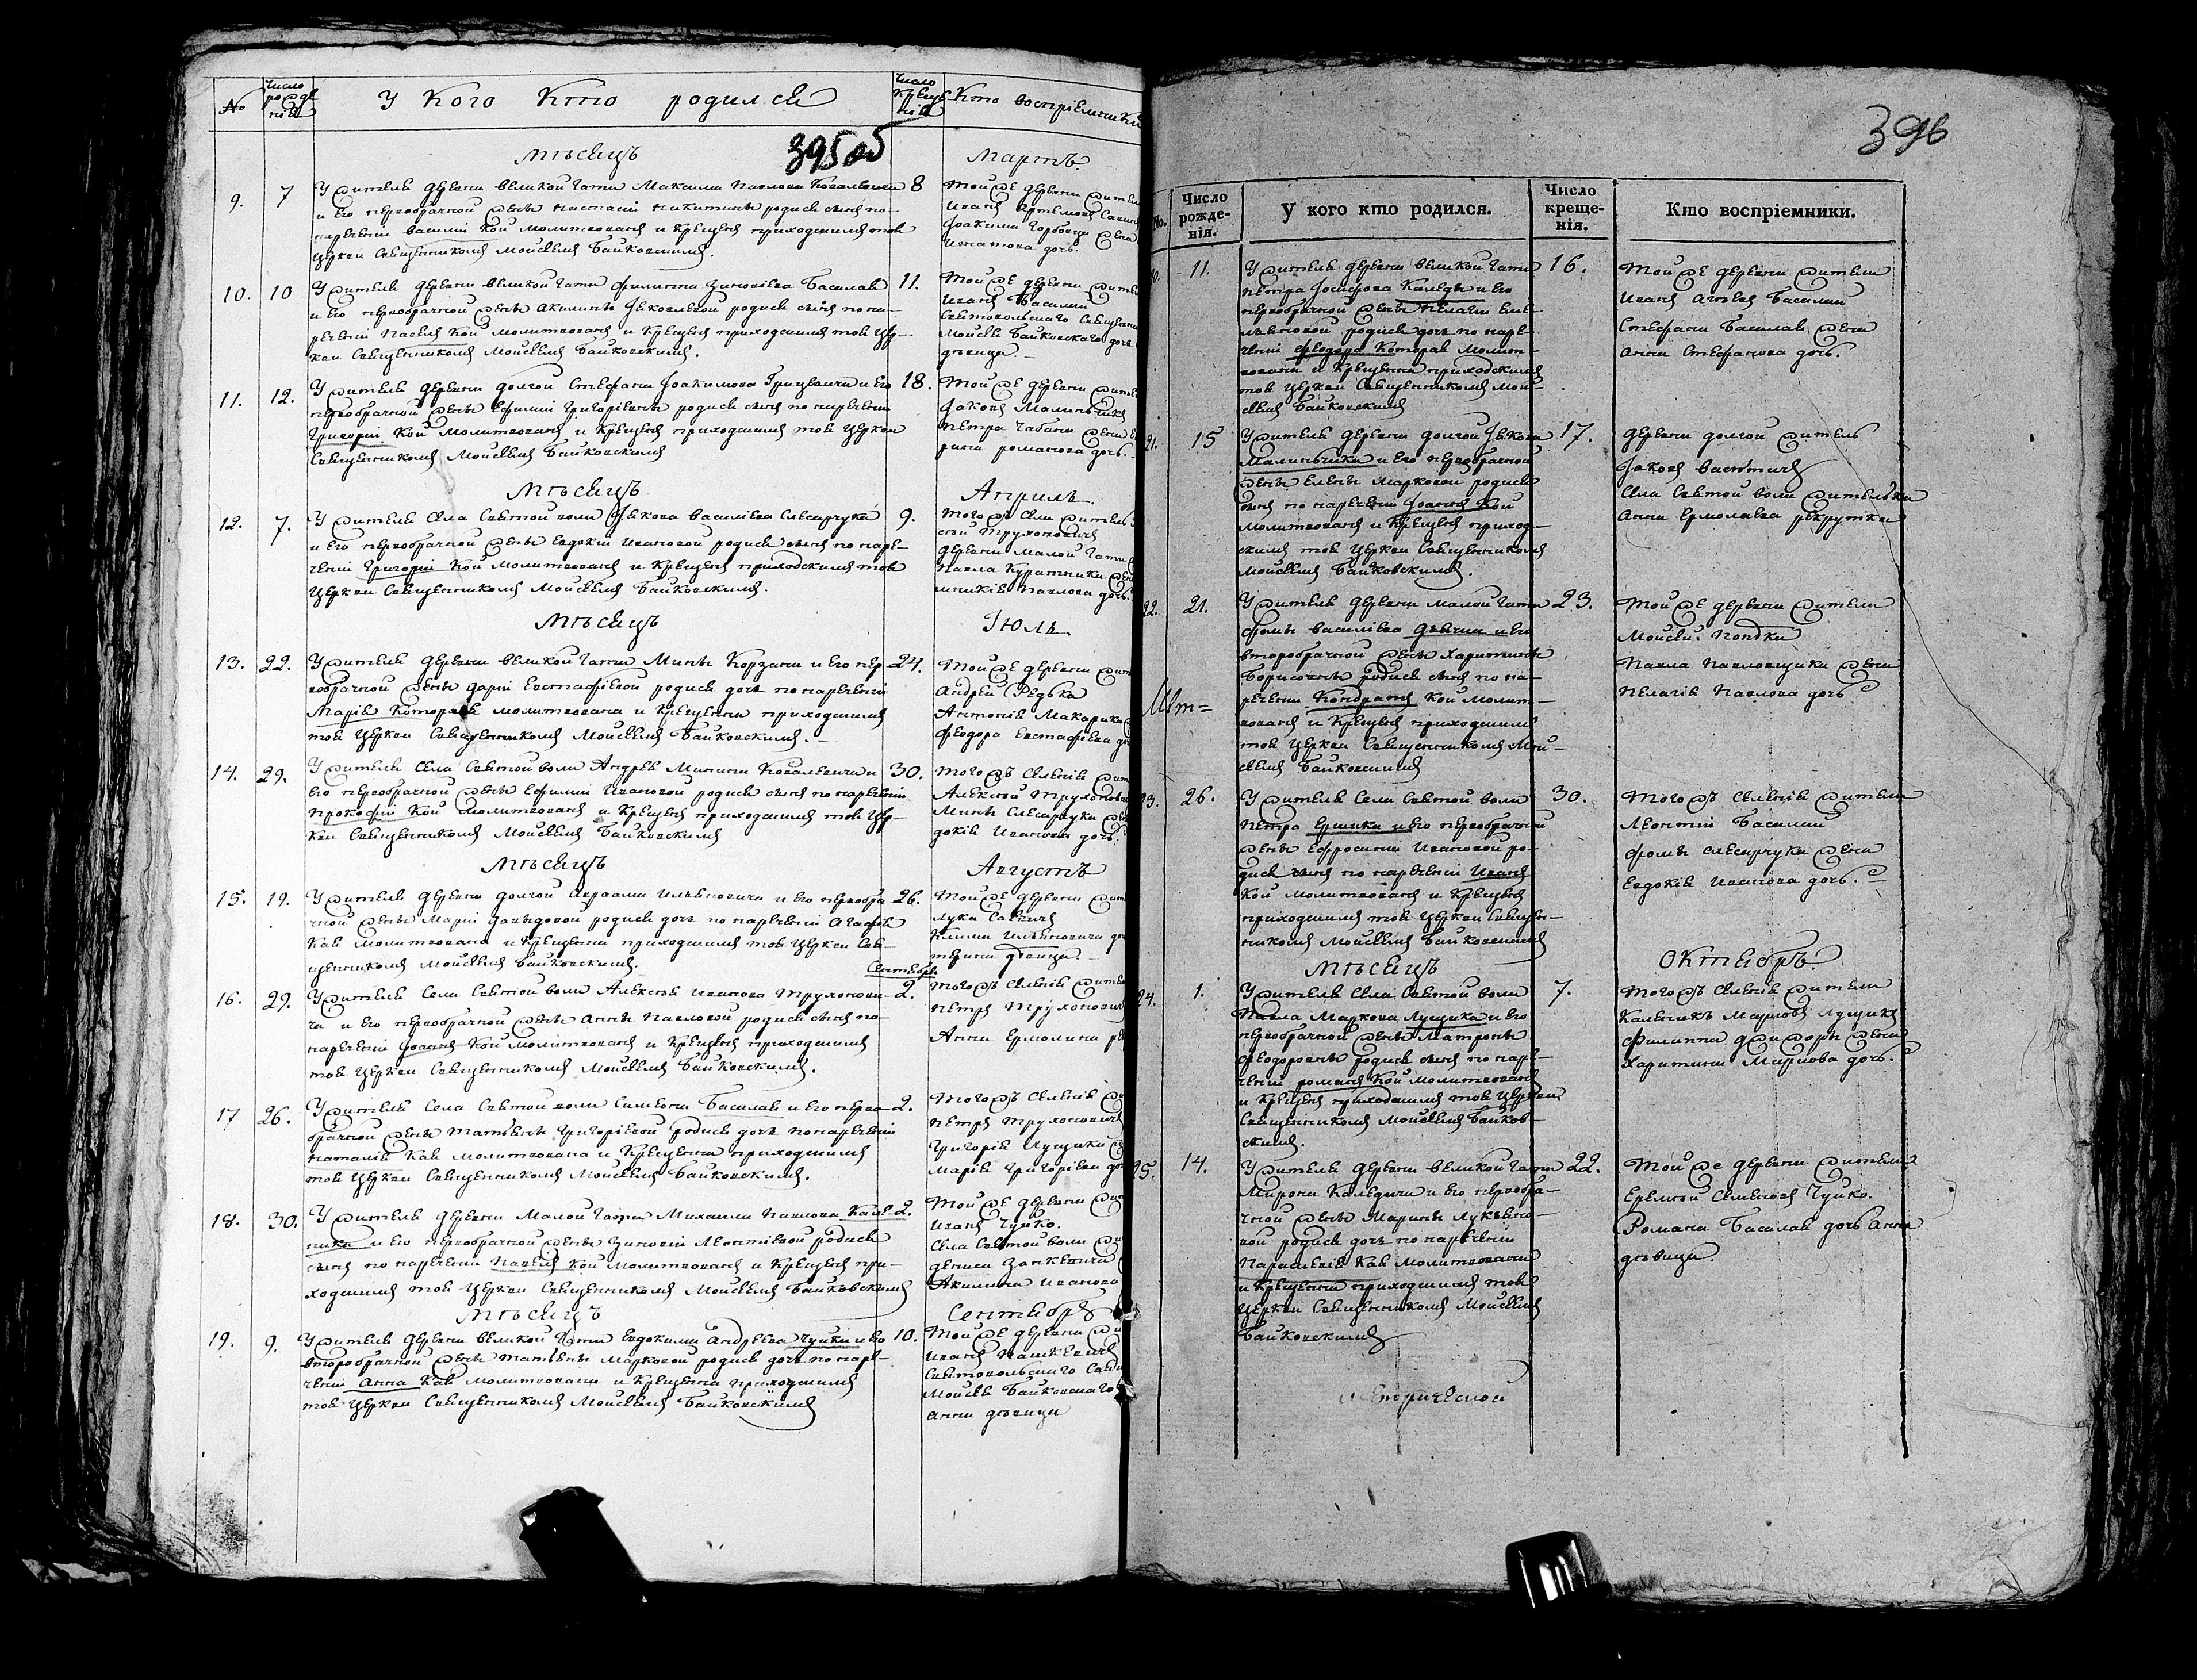 No
Число рожденія
У кого кто родился
Число крещенія
Кто воспріемники
395 об
Мѣсяцъ
Мартъ
9.
7
У жителя деревни великой Гати Максима Павлова Ковалевича
и его первобрачной жены Настасіи Никитины родися сынъ по
нареченіи Василій кой молитвованъ и крещенъ приходскимъ тоя
церкви священникомъ Мойсеемъ Байковскимъ.
8
Той же деревни
Иванъ Артемовъ
Іоакима Горбачи жена
Игнатова дочь.
10.
10
У жителя деревни великой Гати Филиппа Зиновіева Басалая
и его первобрачной жены Акилины Яковлевой родися сынъ по на-
реченіи Павелъ кой молитвованъ и крещенъ приходскимъ тоя цер-
кви священникомъ Мойсеемъ Байковскимъ.
11.
Той же деревни
Иванъ Басалай
Святовольскаго
Мойсея Байковскаго дочь
дѣвица.
11.
12.
У жителя деревни Долгой Стефана Іоакимова Грицевича и его
первобрачной жены Ефиміи Григоріевны родися сынъ по нареченіи
Григорій кой молитвованъ и крещенъ приходскимъ тоя церкви
священникомъ Мойсеемъ Байковскимъ
18.
Той же деревни
Іаковъ Малиньчикъ
Петра Чабана жена
рина Романова дочь.
Мѣсяцъ
Апрель.
12.
7.
У жителя села Святой воли Якова Василіева Слесарчука
и его первобрачной жены Евдокіи Ивановой родися сынъ по наре-
ченіи Григорій кой молитвованъ и крещенъ приходскимъ тоя
церкви священникомъ Мойсеемъ Байковскимъ.
9.
Того жъ села
Трухоновичъ
деревни Малой Гати
Павла Куратника
Павлова дочь.
Мѣсяцъ
Іюль
13.
22.
У жителя деревни великой Гати Мины Корзана и его пер-
вобрачной жены Даріи Евстафіевой родися дочь по нареченіи
Марія которая молитвована и крещенна приходскимъ
тоя церкви священникомъ Мойсеемъ Байковскимъ.
24.
Той же деревни
Андрей Федька
Антонія Макарика
Феодора Евстафіева
14.
29.
У жителя села Святой воли Андрея Минина Ковалевича и
его первобрачной жены Ефиміи Ивановой родися сынъ по нареченіи
Прокофій кой молитвованъ и крещенъ приходскимъ тоя цер-
кви священникомъ Мойсеемъ Байковскимъ
30.
Того жъ селенія
Алексей
Мины Слесарчука
докія Иванова дочь.
Мѣсяцъ
Августъ
15.
19.
У жителя деревни Долгой Авраама Ильяновича и его первобра-
чной жены Маріи Давыдовой родися дочь по нареченіи Агафія
кая молитвована и крещенна приходскимъ тоя церкви свя-
щенникомъ Мойсеемъ Байковскимъ.
26.
Той же деревни
Лука Савичъ
Климы Ильяновича
терина дѣвица
Сентября
16.
29.
У жителя села Святой воли Алексея Иванова Трухонови-
ча и его первобрачной жены Анны Павловой родися сынъ по
нареченіи Іоаннъ кой молитвованъ и крещенъ приходскимъ
тоя церкви священникомъ Мойсеемъ Байковскимъ.
2.
Того жъ селенія
Петръ Трухоновичъ
Анна Ермолина
17
26.
У жителя села Святой воли Симеона Басалая и его перво-
брачной жены Татьяны Григоріевой родися дочь по нареченіи
Наталія кая молитвована и крещенна приходскимъ
тоя церкви священникомъ Мойсеемъ Байковскимъ.
2.
Того жъ селенія
Петръ Трухоновичъ
Григорія Лущика
Марія Григоріева
18.
30.
У жителя деревни Малой Гати Михаила Павлова
и его первобрачной жены Зиновіи Леонтіевой родися
сынъ по нареченіи Павелъ кой молитвованъ и крещенъ при-
ходскимъ тоя церкви священникомъ Мойсеемъ Байковскимъ
2.
Той же деревни
Иванъ Чуйко.
Села Святой воли
Дениса
Акилина Иванова
Мѣсяцъ
Сентябрь
19.
9.
У жителя деревни великой Гати Евдокима Андреева Чуйки и его
второбрачной жены Татьяны Марковой родися дочь по наре-
ченіи Анна кая молитвована и крещенна приходскимъ
тоя церкви священникомъ Мойсеемъ Байковскимъ
10.
Той же деревни
Иванъ Пашкевичъ
Святовольскаго
Мойсея Байковскаго
Анна дѣвица
396
No.
Число рожде-нія.
У кого кто родился.
Число креще-нія.
Кто воспріемники.
11.
У жителя деревни великой Гати
Петра Іосифова Каледы и его
первобрачной жены Пелагіи Еме-
льяновой родися дочь по наре-
ченіи Феодора которая молит-
вована и крещенна приходскимъ
тоя церкви священникомъ Мой-
сеемъ Байковскимъ
16.
Той же деревни жители
Иванъ Агѣевъ Басалай
Стефана Басалая жена
Анна Стефанова дочь.
21.
15
У жителя деревни Долгой Якова
Малиньчика и его первобрачной
жены Елены Марковой родися
сынъ по нареченіи Іоаннъ кой
молитвованъ и крещенъ приход-
скимъ тоя церкви священникомъ
Мойсеемъ Байковскимъ.
17.
Деревни Долгой житель
Іаковъ
села Святой воли жителька
Анна Ермолаева рекрутка
22.
21.
У жителя деревни Малой Гати
Фомы Василіева и его
второбрачной жены Харитины
Борисовны родися сынъ по на-
реченіи Кондратъ кой молит-
вованъ и крещенъ приходскимъ
тоя церкви священникомъ Мой-
сеемъ Байковскимъ
23.
Той же деревни жители
Мойсей Попдка
Павла Павловщика жена
Пелагія Павлова дочь
23.
26.
У жителя села Святой воли
Петра Ершика и его первобрачной
жены Ефросиніи Ивановой ро-
дися сынъ по нареченіи Иванъ
кой молитвованъ и крещенъ
приходскимъ тоя церкви священ-
никомъ Мойсеемъ Байковскимъ
30.
Того жъ селенія жители
Леонтій Басалай
Фомы Слесарчука жена
Евдокія Иванова дочь.
Мѣсяцъ
Октябрь.
24.
1.
У жителя села Святой воли
Павла Маркова Лущика и его
первобрачной жены Матроны
Феодоровны родися сынъ по наре-
ченіи Романъ кой молитвованъ
и крещенъ приходскимъ тоя церкви
священникомъ Мойсеемъ Байков-
скимъ.
7.
Того жъ селенія жители
Калиникъ Марковъ Лущикъ
Филиппа жена
Харитина Маркова дочь.
25.
14.
У жителя деревни великой Гати
Мирона Каледича и его первобра-
чной жены Марины Лукьяно-
вой родися дочь по нареченіи
Параскевія кая молитвована
и крещенна приходскимъ тоя
церкви священникомъ Мойсеемъ
Байковскимъ
22.
Той же деревни жители
Еремѣй Семеновъ Чуйко.
Романа Басалая дочь Анна
дѣвица.